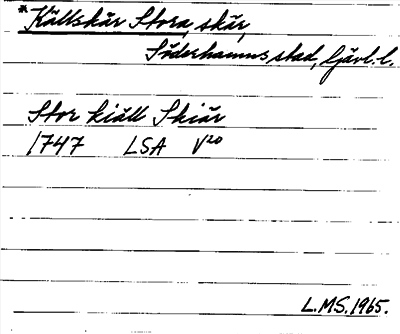 *Källskär Stora, skär,
Söderhamns stad, Gävl. l.
Stor kiäll Skiär
1747 LSA V20
L.M.S. 1965.